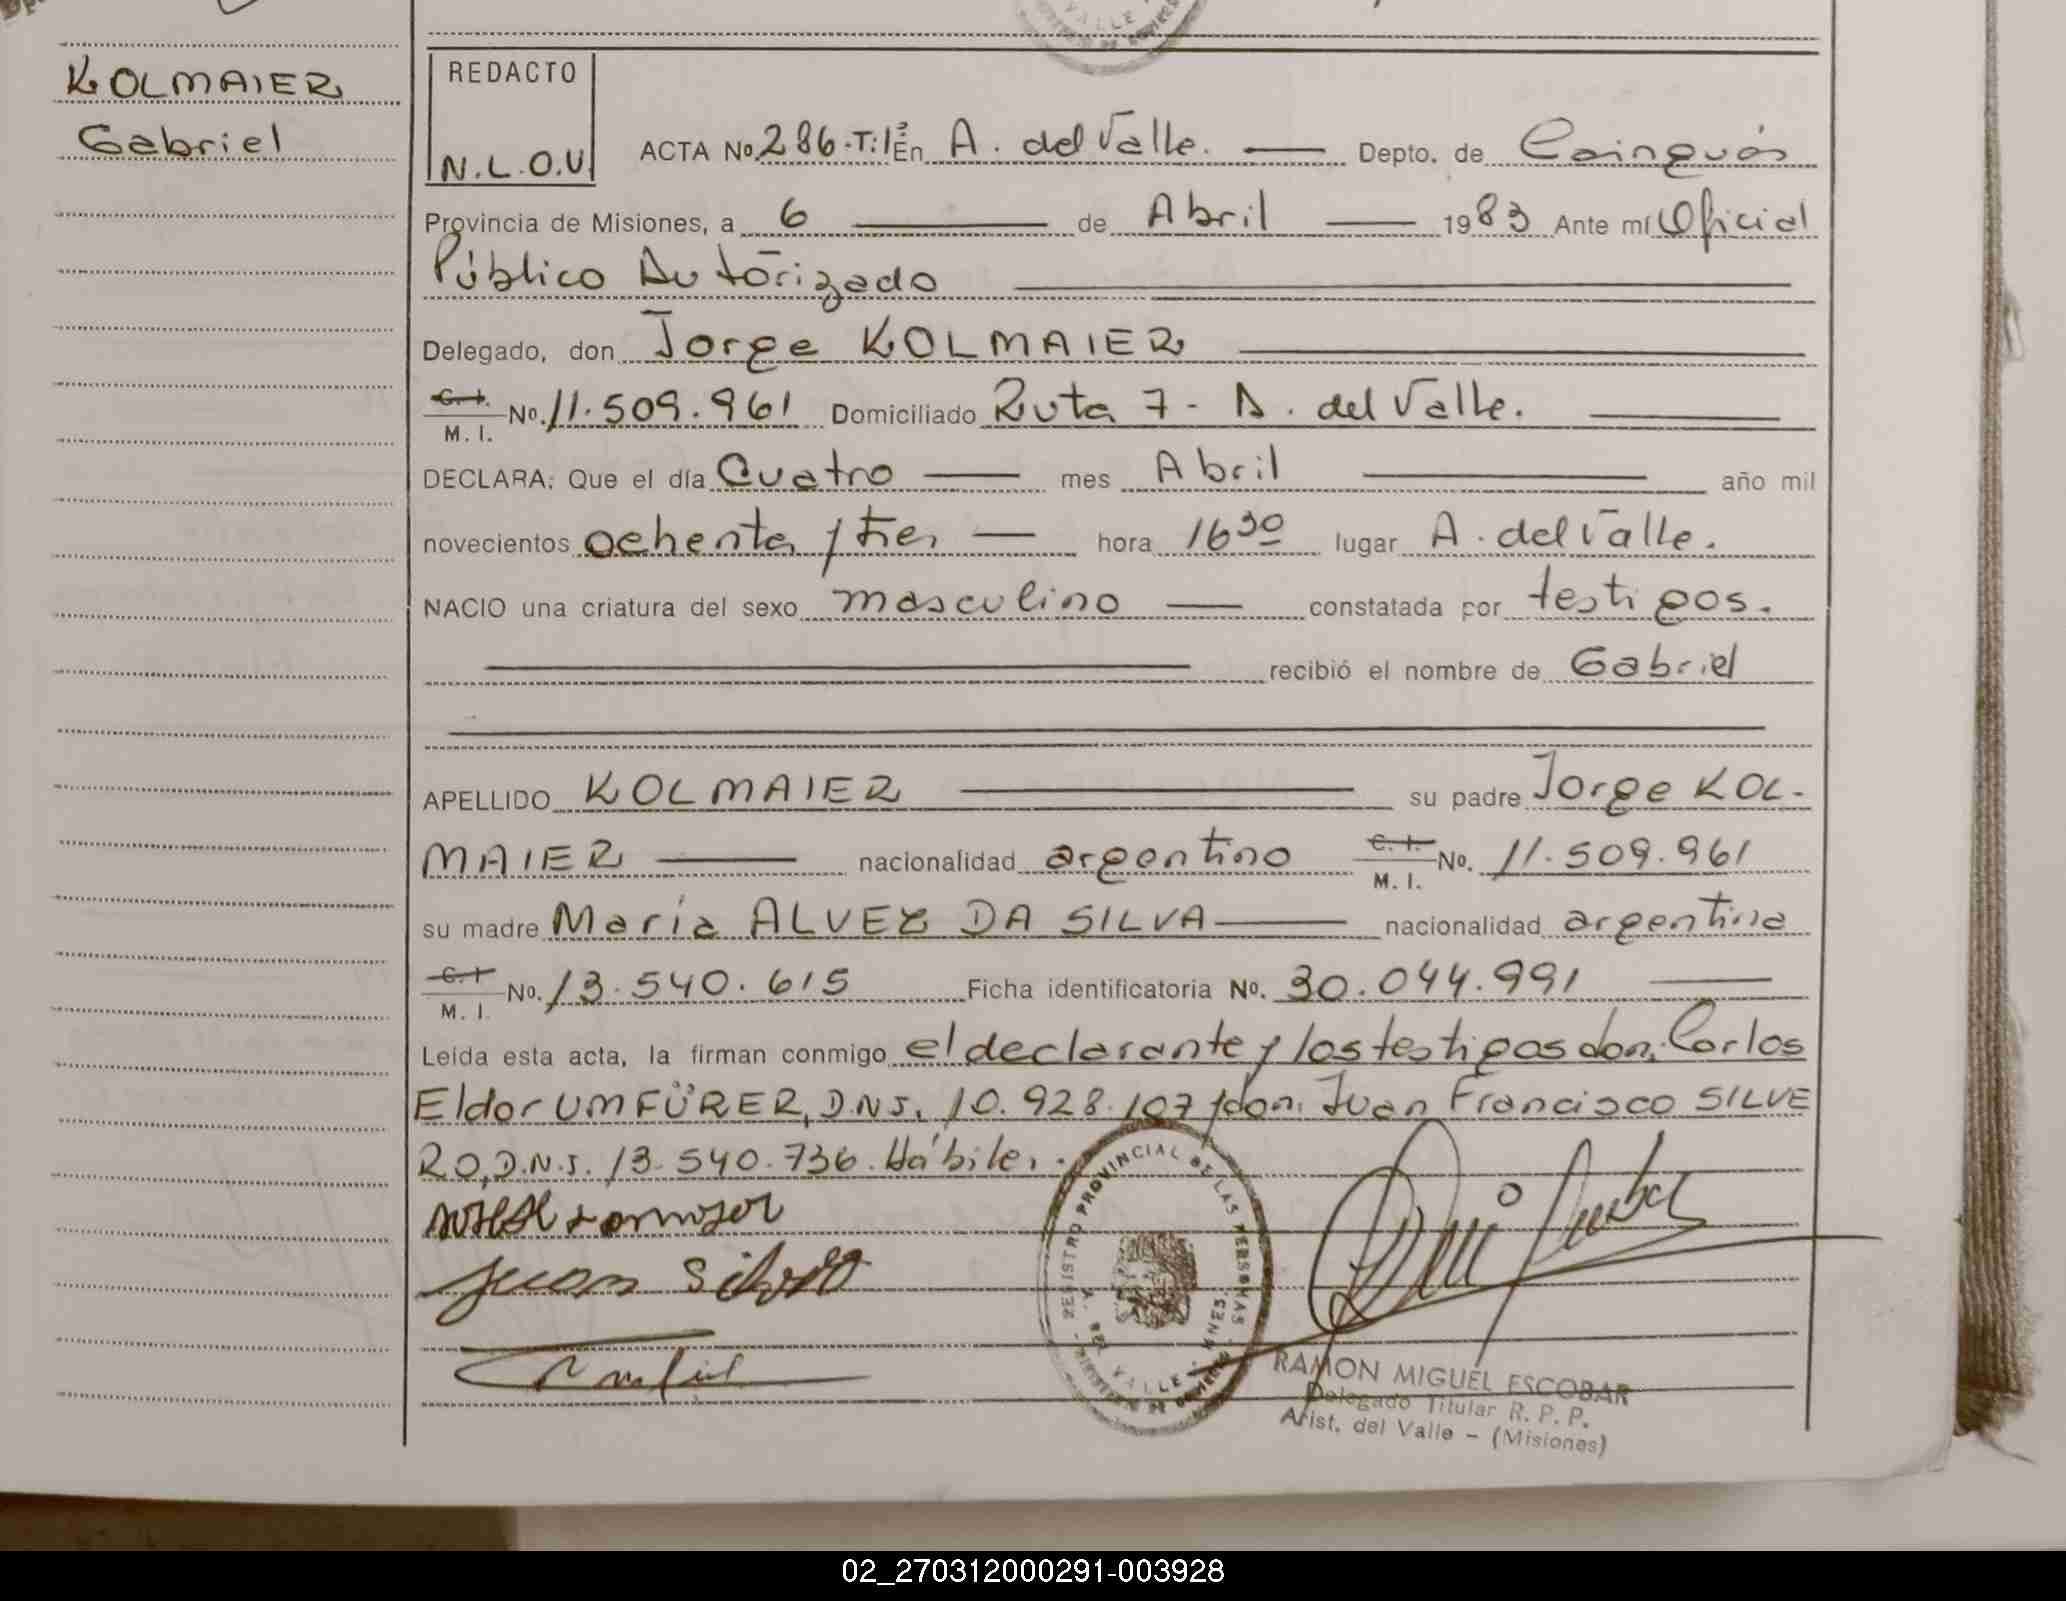 KOLMAIER
Gabriel
REDACTO
N.L.O.U.
ACTA No. 286.T:1ª En A. del Valle. Depto. de Cainguás
Provincia de Misiones, a 6 de Abril 1983 Ante mí Oficial
Público Autorizado
Delegado, don Jorge KOLMAIER
C. I. M. I. No. 11.509.961 Domiciliado Ruta 7 - A. del Valle.
DECLARA: Que el día Cuatro mes Abril año mil
novecientos ochenta y tres hora 16 30 lugar A. del Valle.
NACIO una criatura del sexo masculino constatada por testigos.
recibió el nombre de Gabriel
APELLIDO KOLMAIER su padre Jorge KOL-
MAIER nacionalidad argentino C. I. M. I. No. 11.509.961
su madre María ALVEZ DA SILVA nacionalidad argentina
C. I. M. I. No. 13.540.615 Ficha identificatoria No. 30.044.991
Leida esta acta, la firman conmigo el declarante y los testigos don. Carlos
Eldor UMFÜRER, D.N.I. 10.928.107 y don. Juan Francisco SILVE
RO, D.N.I. 13.540.736. Hábiles.
Juan Silvero
REGISTRO PROVINCIAL DE LAS PERSONAS
A. DEL VALLE - MNES.
MINISTERIO DE GOBIERNO
RAMON MIGUEL ESCOBAR
Delegado Titular R. P. P.
Arist. del Valle - (Misiones)
02_270312000291-003928